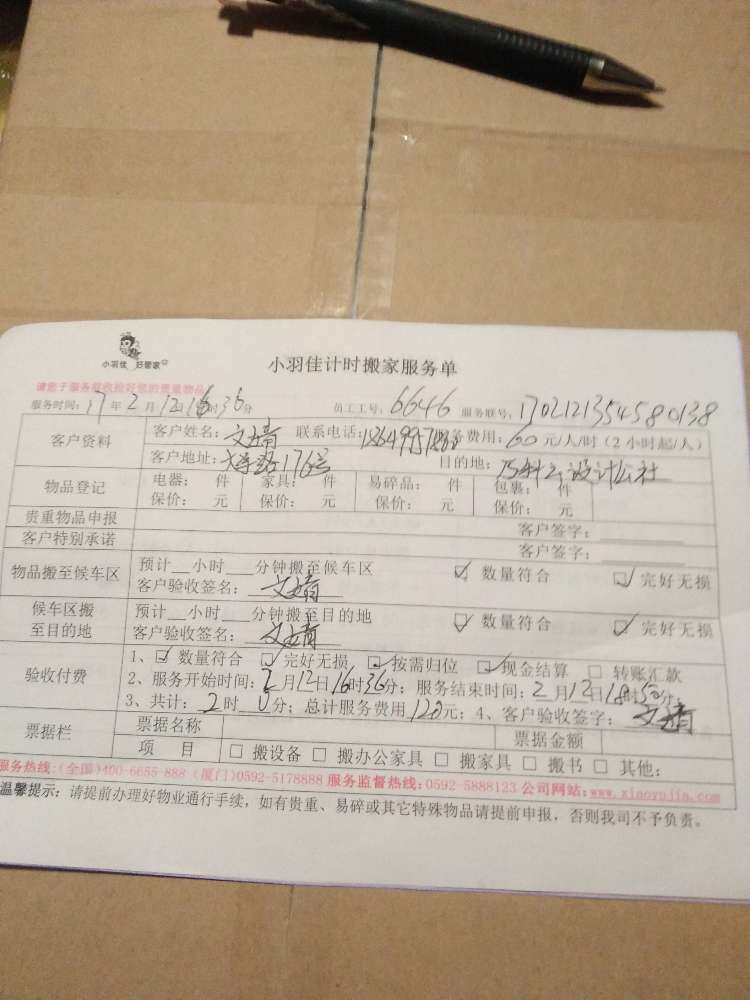 小羽佳 好管家
小羽佳计时搬家服务单
请您于服务前收捡好您的贵重物品
服务时间：17年2月12日16时36分 员工工号：6646 服务联号：1702121354580138
客户资料 客户姓名：文婧 联系电话： 服务费用：60元/人/时（2小时起/人）
客户地址：大学路176号 目的地：设计公社
物品登记 电器： 件 家具： 件 易碎品： 件 包裹： 件
保价： 元 保价： 元 保价： 元 保价： 元
贵重物品申报 客户签字：
客户特别承诺 客户签字：
物品搬至候车区 预计 小时 分钟搬至候车区 ☑ 数量符合 ☑ 完好无损
客户验收签名：文婧
候车区搬至目的地 预计 小时 分钟搬至目的地 ☑ 数量符合 ☑ 完好无损
客户验收签名：文婧
验收付费 1、☑ 数量符合 ☑ 完好无损 ☑ 按需归位 ☑ 现金结算 □ 转账汇款
2、服务开始时间：2月12日16时36分；服务结束时间：2月12日18时50分；
3、共计：2时0分；总计服务费用120元；4、客户验收签字：文婧
票据栏 票据名称 票据金额
项 目 □ 搬设备 □ 搬办公家具 □ 搬家具 □ 搬书 □ 其他：
服务热线：(全国)400-6655-888 (厦门)0592-5178888 服务监督热线：0592-5888123 公司网站：www.xiaoyujia.com
温馨提示：请提前办理好物业通行手续，如有贵重、易碎或其它特殊物品请提前申报，否则我司不予负责。